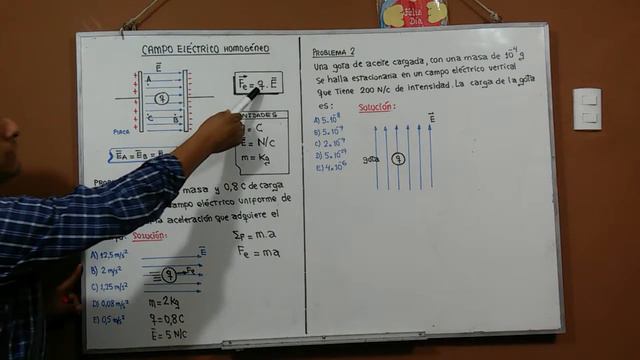 Feliz Día
CAMPO ELÉCTRICO HOMOGÉNEO
E
A
q
C
B
PLACA
Fe = q . E
UNIDADES
= C
= N/C
m = Kg
EA = EB = E
masa y 0,8 C de carga
campo eléctrico uniforme de
la aceleración que adquiere el
Solución:
A) 12,5 m/s²
B) 2 m/s²
C) 1,25 m/s²
D) 0,08 m/s²
E) 0,5 m/s²
E
q
Fe
m = 2 Kg
q = 0,8 C
E = 5 N/C
ΣF = m.a
Fe = ma
PROBLEMA 2
Una gota de aceite cargada, con una masa de 10⁻⁴ g
se halla estacionaria en un campo eléctrico vertical
que tiene 200 N/C de intensidad. La carga de la gota
es:
Solución:
A) 5.10⁻⁸
B) 5.10⁻⁹
C) 2.10⁻⁹
E) 4.10⁻⁶
E
gota
q